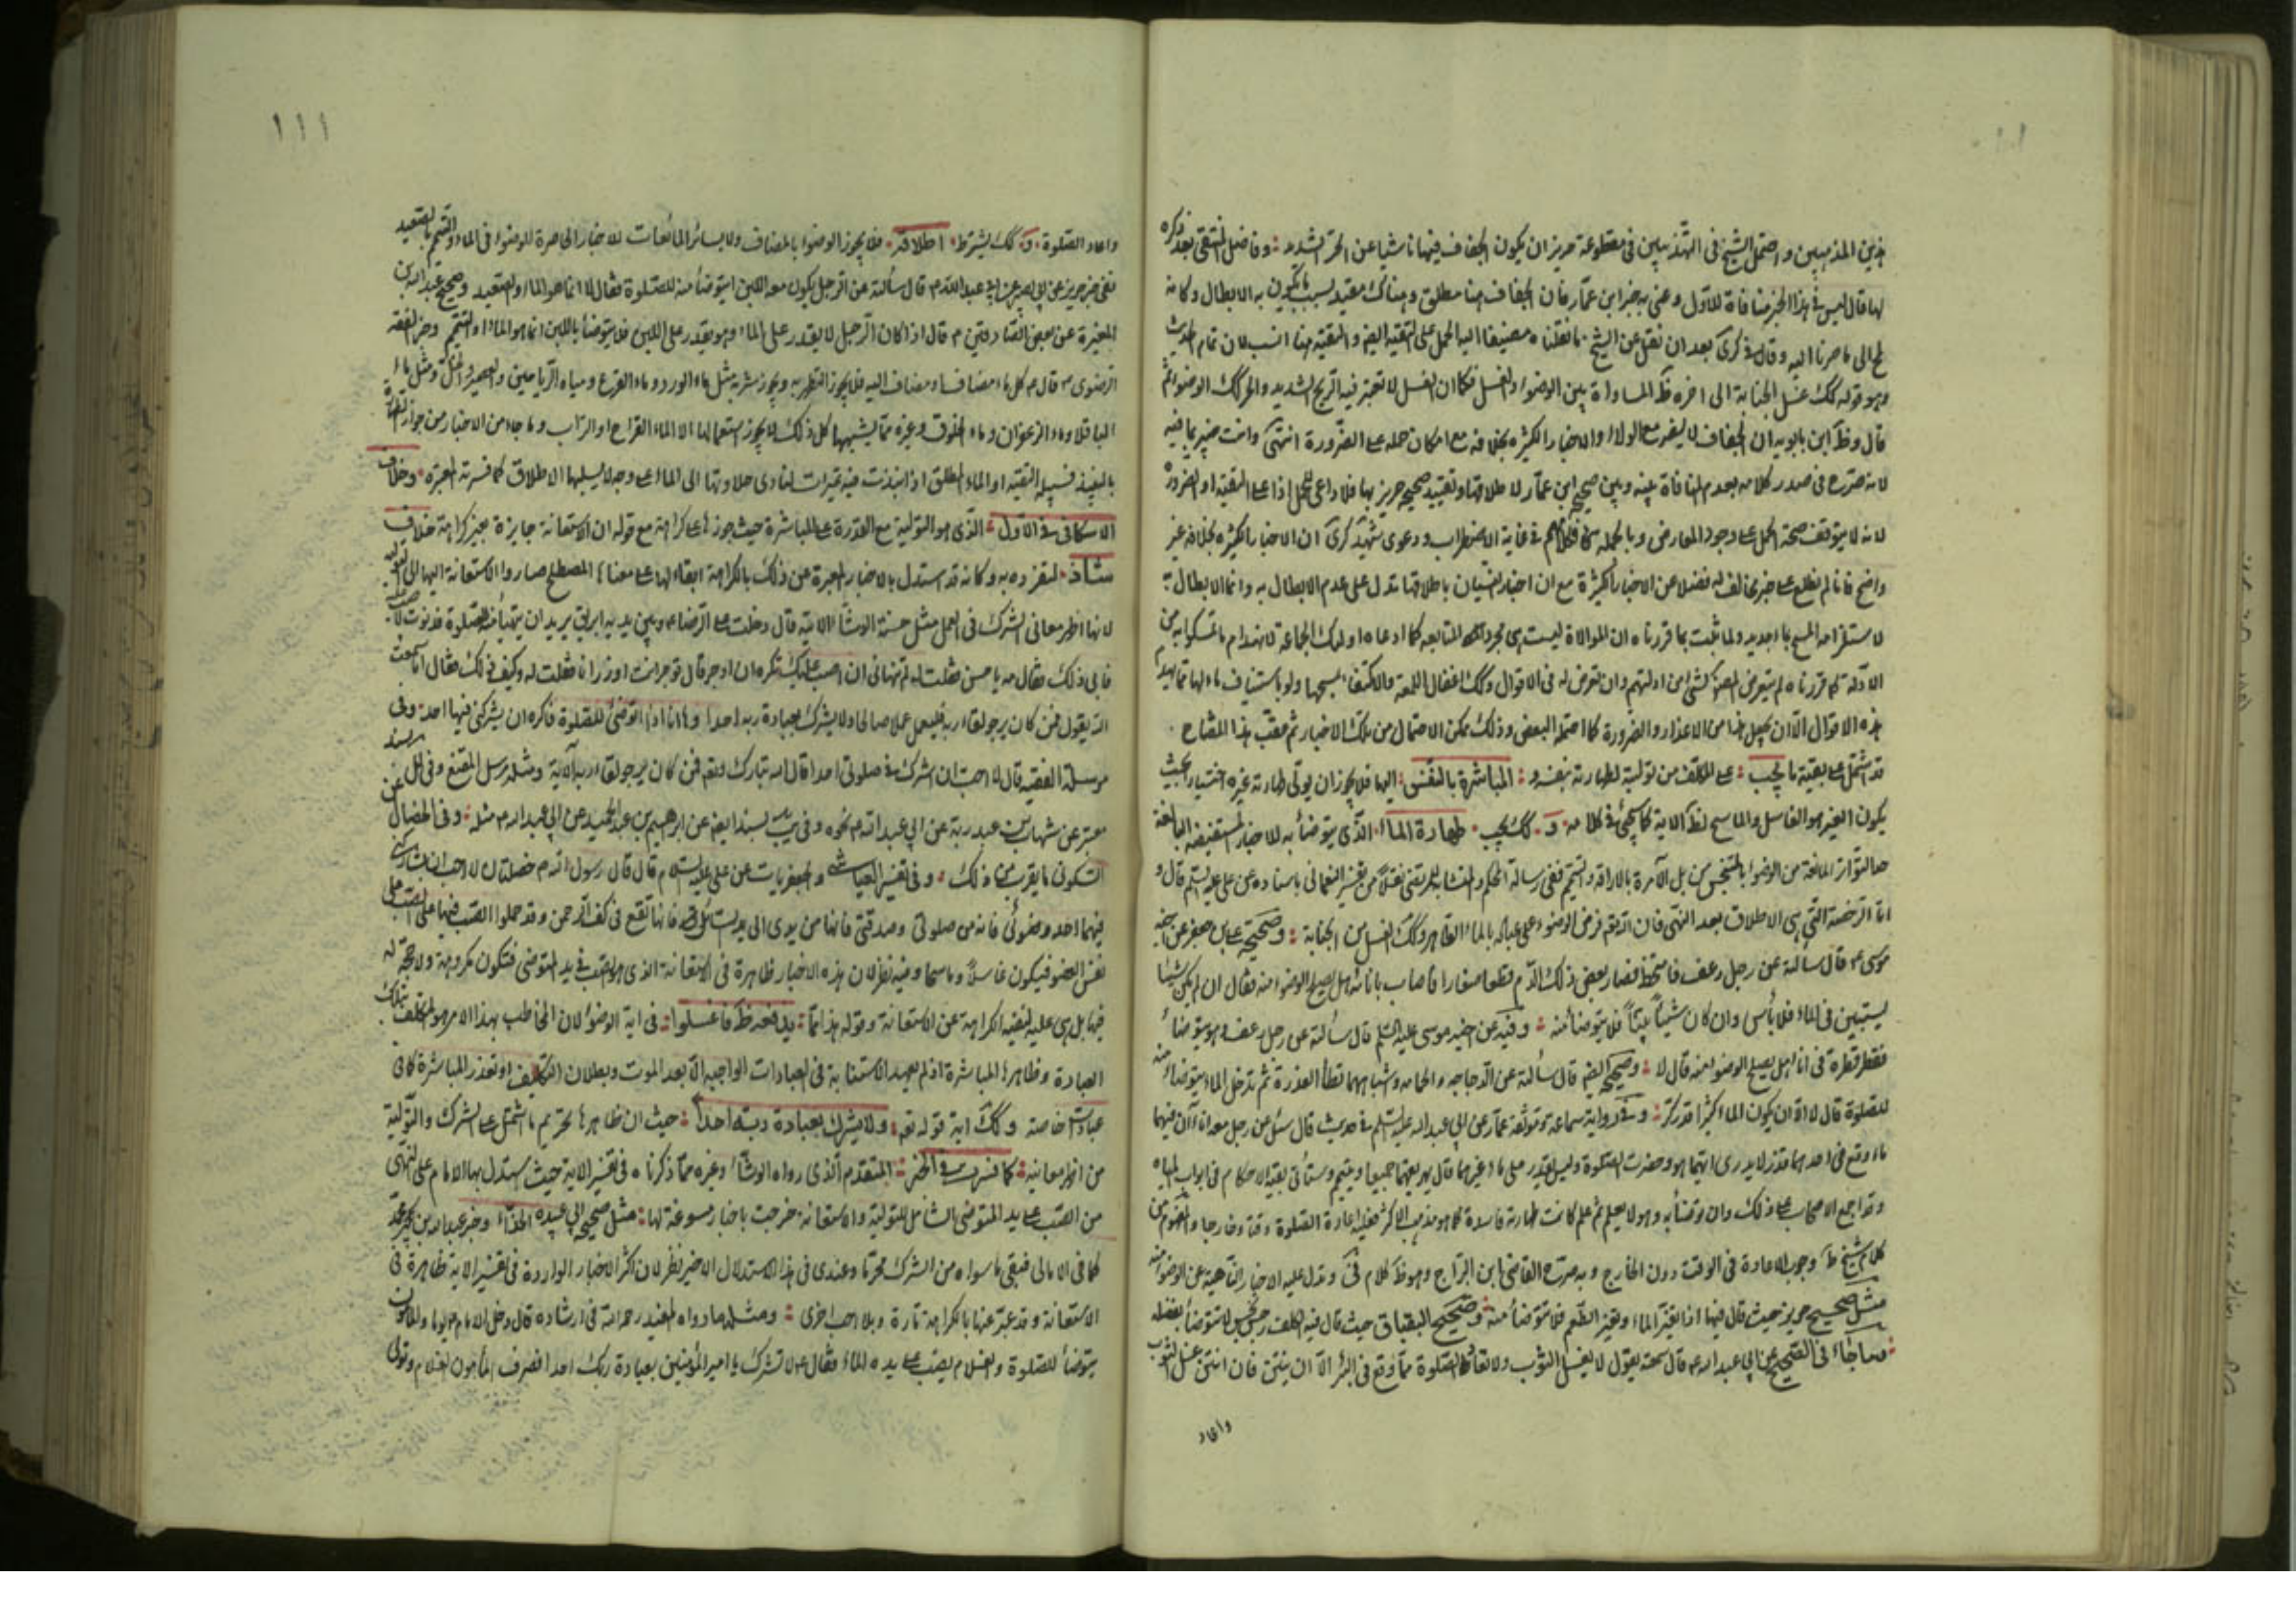 هذين المذهبين واحتمل الشيخ في التهذيبين في مقطوعة حريز ان يكون الجفاف فيها ناشيا عن الحر الشديد وفاضل المنتقى بعد ذكره
لها قال ليس في هذا الخبر منافاة للاول وعنى به خبر ابن عمار فان الجفاف هنا مطلق وهناك مقيد بسبب يكون به الابطال وكانه
الى ما صرنا اليه وقال في كرى بعد ان نقل عن الشيخ ما نقلناه مضيفا اليه الحمل على التقية ايضا والتقية هنا انسب لان تمام الحديث
وهو قوله كك غسل الجنابة الى اخره ظ المساواة بين الوضوء والغسل فكما ان الغسل لا تعتبر فيه الريح الشديد والحر كك الوضوء ثم
قال وظ ابن بابويه ان الجفاف لا يضر مع الولاء والاخبار الكثيرة بخلافه مع امكان حمله على الضرورة انتهى وانت خبير بما فيه
لانه صرح في صدر كلامه بعدم المنافاة بينه وبين صحيح ابن عمار لاطلاقها وتقييد صحيح حريز بها فلا داعي للحمل اذا على التقية او الضرورة
لانه لا يتوقف صحة الحمل على وجود المعارض وبالجملة فكلامهم في غاية الاضطراب ودعوى شهيد كرى ان الاخبار الكثيرة بخلافه غير
واضح فانا لم نطلع على خبر مخالف له فضلا عن الاخبار الكثيرة مع ان اخبار النسيان باطلاقها تدل على عدم الابطال به وانما الابطال
لاستلزامه المسح بماء جديد ولما ثبت بما قررناه ان الموالاة ليست هي مجرد المتابعة كما ادعاه اولئك الجماعة لانهدام ما تمسكوا به من
الادلة كما قررناه لم يتعرض المص لشيء من ادلتهم وان تعرض له في الاقوال وكك اغفال اللمعة والاكتفاء بمسحها ولو باستيناف ماء لها
هذه الاقوال الا ان يجعل هذا من الاعذار والضرورة كما احتمله البعض وذلك ممكن الاحتمال من تلك الاخبار ثم عقب هذا المفتاح
قد اشتمل على بقية ما يجب على المكلف من تولية لطهارته بنفسه و المباشرة بالنفس اليها فلا يجوز ان يولي طهارته غيره اختيارا بحيث
يكون الغير هو الغاسل والماسح لظ الاية كما سيجئ في كلامه و كك يجب طهارة الماء الذي يتوضأ به للاخبار المستفيضة البالغة
حد التواتر المانعة من الوضوء بالمتنجس بل الآمرة بالاراقة والتيمم ففي رسالة المحكم والمتشابه للمرتضى نقلا من تفسير النعماني باسناده عن علي عليه السلم قال و
اما الرخصة التي هي الاطلاق بعد النهي فان الله تعم فرض الوضوء على عباده بالماء الطاهر وكك الغسل من الجنابة وصحيحة علي بن جعفر عن اخيه
موسى ع قال سألته عن رجل رعف فامتخط فصار بعض ذلك الدم قطعا صغارا فاصاب باناءه هل يصلح الوضوء منه فقال ان لم يكن شيئا
يستبين في الماء فلا بأس وان كان شيئا بينا فلا يتوضأ منه وفيه عن اخيه موسى عليه السلم قال سألته عن رجل رعف وهو يتوضأ
فقطر قطرة في اناءه هل يصلح الوضوء منه قال لا وصحيحه ايضا قال سألته عن الدجاجة والحمامة واشباههما تطأ العذرة ثم تدخل الماء يتوضأ منه
للصلوة قال لا الا ان يكون الماء كثيرا قدر كر وفي رواية سماعة وموثقة عمار عن ابي عبد الله عليه السلم في حديث قال سئل عن رجل معه اناءان فيهما
ماء وقع في احدهما قذر لا يدرى ايهما هو وحضرت الصلوة وليس يقدر على ماء غيرهما قال يهريقهما جميعا ويتيمم وستأتي بقية الاحكام في ابواب المياه
وقد اجمع الاصحاب على ذلك وان توضأ به وهو لا يعلم ثم علم كانت طهارته فاسدة كما هو مذهب الاكثر فعليه اعادة الصلوة وقتا وخارجا والمفهوم من
كلام الشيخ ط وجوب الاعادة في الوقت دون الخارج وبه صرح القاضي ابن البراج وهو ظ كلام في وتدل عليه الاخبار الناهية عن الوضوء منه
مثل صحيح حريز حيث قال فيها اذا تغير الماء وتغير الطعم فلا تتوضأ منه وصحيح البقباق حيث قال فيه الكلب رجس نجس لا تتوضأ بفضله
وما جاء في الصحيح عن ابي عبد الله ع قال سمعته يقول لا يغسل الثوب ولا تعاد الصلوة مما وقع في البئر الا ان ينتن فان انتن غسل الثوب
واعاد
١١١
واعاد الصلوة و كك يشترط اطلاقه فلا يجوز الوضوء بالمضاف ولا بسائر المائعات للاخبار الحاصرة للوضوء في الماء والتيمم بالصعيد
ففي خبر حريز عن ابي بصير عن ابي عبد الله ع قال سألته عن الرجل يكون معه اللبن ايتوضأ منه للصلوة فقال لا انما هو الماء والصعيد وصحيح عبد الله بن
المغيرة عن بعض الصادقين ع قال اذا كان الرجل لا يقدر على الماء وهو يقدر على اللبن فلا يتوضأ باللبن انما هو الماء او التيمم وخبر الفقه
الرضوي قال ع كل ماء مضاف او مضاف اليه فلا يجوز التطهر به ويجوز شربه مثل ماء الورد وماء القرع ومياه الرياحين والعصير والخل ومثل ماء
الباقلا وماء الزعفران وماء الخلوق وغيره مما يشبهها كل ذلك لا يجوز استعمالها الا الماء القراح او التراب وما جاء من الاخبار من جواز
بالنبيذ فسبيله التقية او الماء المطلق اذا نبذت فيه تميرات لتتأدى حلاوتها الى الماء على وجه لا يسلبها الاطلاق كما فسرته المعتبرة وخلاف
الاسكافي في الاول الذي هو التولية مع القدرة على المباشرة حيث جوزها على كراهة مع قوله ان الاستعانة جايزة بغير كراهة خلاف
شاذ لتفرده به وكانه قد استدل بالاخبار المعبرة عن ذلك بالكراهة ابقاء لها على معناها المصطلح
لانها اظهر معاني الشرك في العمل مثل حسنة الوشاء الاتية قال دخلت على الرضا ع وبين يديه ابريق يريد ان يتهيأ منه للصلوة فدنوت لاصب عليه
فابى ذلك فقال مه يا حسن فقلت له لم تنهاني ان اصب عليك تكره ان اوجر قال توجر انت واوزر انا فقلت له وكيف ذلك فقال اما سمعت
الله يقول فمن كان يرجو لقاء ربه فليعمل عملا صالحا ولا يشرك بعبادة ربه احدا وها انا ذا اتوضأ للصلوة فاكره ان يشركني فيها احد وفي
مرسلة الفقيه قال لا احب ان اشرك في صلوتي احدا قال الله تبارك وتعم فمن كان يرجو لقاء ربه الآية ومثله مرسل المقنع وفي العلل بسند
معتبر عن شهاب بن عبد ربه عن ابي عبد الله ع نحوه وفي يب بسند ايضا عن ابراهيم بن عبد الحميد عن ابي عبد الله ع مثله وفي الخصال عن
السكوني ما يقرب من ذلك وفي تفسير العياشي والجعفريات عن علي عليه السلام قال قال رسول الله ص خصلتان لا احب ان يشاركني
فيهما احد وضوئي فانه من صلوتي وصدقتي فانها من يدي الى يد السائل فانها تقع في كف الرحمن وقد حملوا الصب فيها على الصب على
نفس العضو فيكون غاسلا وماسحا وفيه نظر لان هذه الاخبار ظاهرة في الاستعانة الذي هو الصب في يد المتوضي فتكون مكروهة ولا حجة له
فيها بل هي عليه لنفيه الكراهة عن الاستعانة وقوله هذا يدفعه ظ فاغسلوا في اية الوضوء لان المخاطب بهذا الامر هو المكلف بتلك
العبادة وظاهرها المباشرة اذ لم يعهد الاستنابة في العبادات الواجبة الا بعد الموت وبطلان التكليف او تعذر المباشرة كما في
عبادات خاصة وكك اية قوله تعم ولا يشرك بعبادة ربه احدا حيث ان ظاهرها تحريم ما اشتمل على الشرك والتولية
من اظهر معانيه كما فسرت في الخبر المتقدم الذي رواه الوشاء وغيره مما ذكرناه في تفسير الاية حيث استدل بها الامام على النهي
من الصب على يد المتوضي الشامل للتولية والاستعانة خرجت باخبار مسوغة لها مثل صحيح ابي عبيدة الحذاء وخبر عباد بن
كما في الامالي فبقي ما سواه من الشرك محرما وعندي في هذا الاستدلال الاخير نظر لان اكثر الاخبار الواردة في تفسير الاية ظاهرة في
الاستعانة وقد عبر عنها بالكراهة تارة وبلا احب اخرى ومثلها ما رواه المفيد رحمه الله في ارشاده قال دخل الامام ع يوما والمأمون
يتوضأ للصلوة والغلام يصب على يده الماء فقال ع لا تشرك يا امير المؤمنين بعبادة ربك احدا فصرف المأمون الغلام وتولى